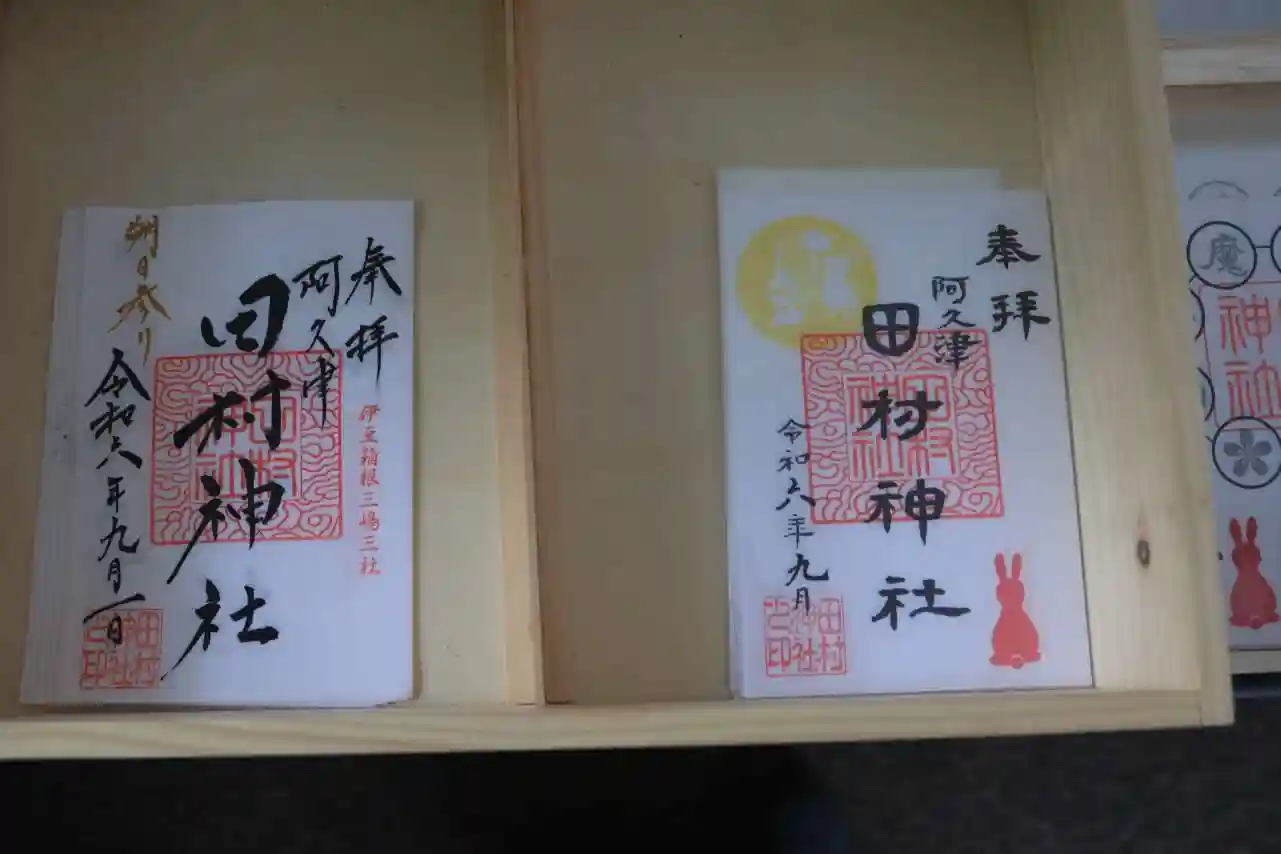 奉拝
阿久津
田村神社
伊豆箱根三嶋三社
朔日参り
令和六年九月一日
田村
神社
之印
奉拝
阿久津
田村神社
令和六年九月
田村
神社
之印
魔
神社